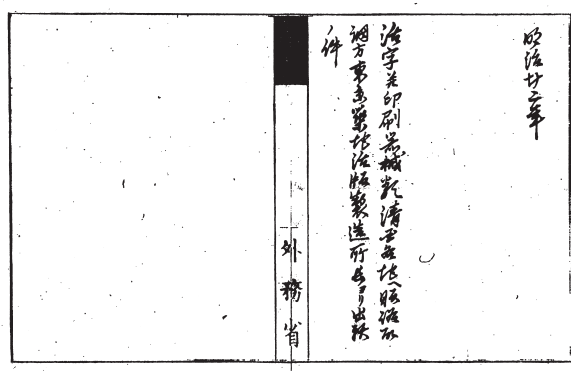 明治廿二年
活字並印刷器械類清国各地ヘ販路取
調方東京築地活版製造所長ヨリ出願
ノ件
外務省